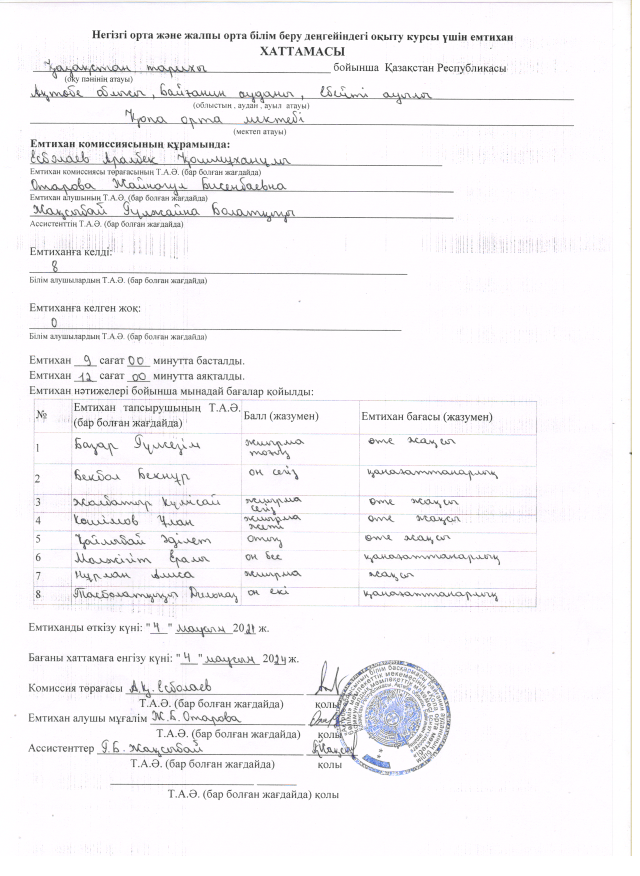 Негізгі орта және жалпы орта білім беру деңгейіндегі оқыту курсы үшін емтихан
ХАТТАМАСЫ
Қазақстан тарихы бойынша Қазақстан Республикасы
(оқу пәнінің атауы)
Ақтөбе облысы, Байғанин ауданы, Ебейті ауылы
(облыстың , аудан , ауыл атауы)
Қопа орта мектебі
(мектеп атауы)
Емтихан комиссиясының құрамында:
Есболаев Арыпбек
Емтихан комиссиясы төрағасының Т.А.Ә. (бар болған жағдайда)
Отарова Жайнагүл Бисенбаевна
Емтихан алушының Т.А.Ә. (бар болған жағдайда)
Жақсыбай Гүлжайна Болатқызы
Ассистенттің Т.А.Ә. (бар болған жағдайда)
Емтиханға келді:
8
Білім алушылардың Т.А.Ә. (бар болған жағдайда)
Емтиханға келген жоқ:
0
Білім алушылардың Т.А.Ә. (бар болған жағдайда)
Емтихан 9 сағат 00 минутта басталды.
Емтихан 12 сағат 00 минутта аяқталды.
Емтихан нәтижелері бойынша мынадай бағалар қойылды:
№ Емтихан тапсырушының Т.А.Ә. (бар болған жағдайда) Балл (жазумен) Емтихан бағасы (жазумен)
1 Базар Гүлсезім жиырма тоғыз өте жақсы
2 Бекбол Бекнұр он сегіз қанағаттанарлық
3 Жолбатыр Күнсай жиырма сегіз өте жақсы
4 Көшімов Ұлан жиырма жеті өте жақсы
5 Қойлыбай Әділет отыз өте жақсы
6 Мәлжігіт Ералы он бес қанағаттанарлық
7 Нұрлан Алиса жиырма жақсы
8 Тасболатқызы Дильназ он екі қанағаттанарлық
Емтиханды өткізу күні: "4" маусым 2024 ж.
Бағаны хаттамаға енгізу күні: "4" маусым 2024 ж.
Комиссия төрағасы А.Қ. Есболаев
Т.А.Ә. (бар болған жағдайда) қолы
Емтихан алушы мұғалім Ж.Б. Отарова
Т.А.Ә. (бар болған жағдайда) қолы
Ассистенттер Г.Б. Жақсыбай
Т.А.Ә. (бар болған жағдайда) қолы
Т.А.Ә. (бар болған жағдайда) қолы